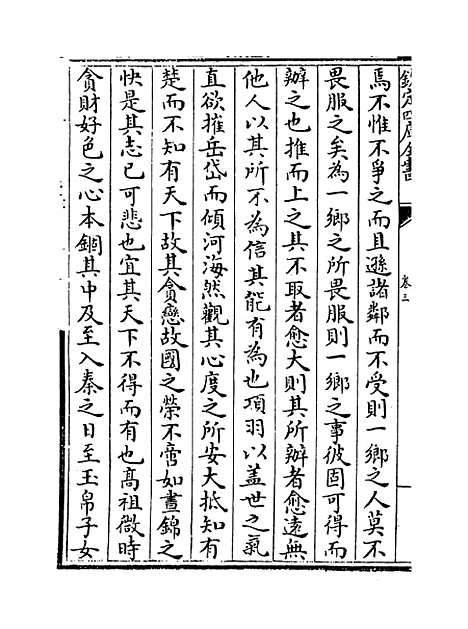 欽定四庫全書
卷三
焉不惟不爭之而且遜諸鄰而不受則一鄉之人莫不
畏服之矣為一鄉之所畏服則一鄉之事彼固可得而
辦之也推而上之其不取者愈大則其所辦者愈遠無
他人以其所不為信其能有為也項羽以蓋世之氣
直欲摧岳岱而傾河海然觀其心度之所安大抵知有
楚而不知有天下故其貪戀故國之榮不啻如晝錦之
快是其志已可悲也宜其天下不得而有也髙祖微時
貪財好色之心本錮其中及至入秦之日至玉帛子女